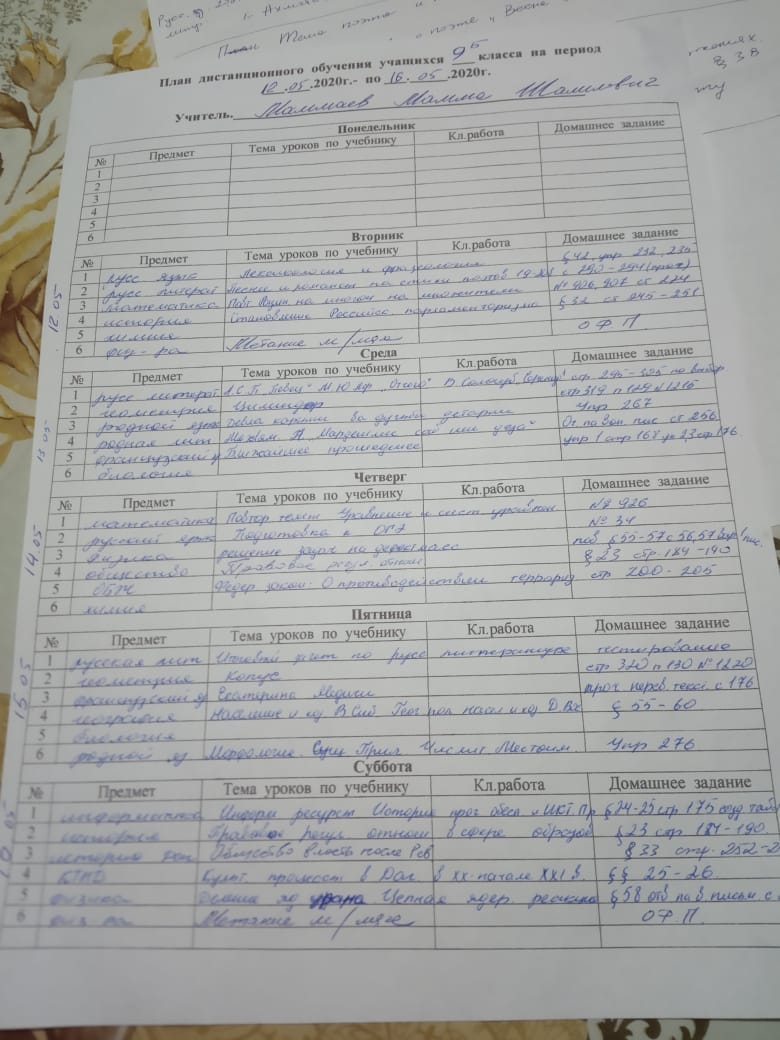 План дистанционного обучения учащихся 9б класса на период
12.05.2020г.- по 16.05.2020г.
Учитель. Маммаев Мамма Шапиевич
Понедельник
№ Предмет Тема уроков по учебнику Кл.работа Домашнее задание
1
2
3
4
5
6
12.05
Вторник
№ Предмет Тема уроков по учебнику Кл.работа Домашнее задание
1 русс язык Лексикология и фразеология § 42, упр 232, 235
2 русс литерат Песни и романсы на стихи поэтов 19-XX с 290-294 (проч)
3 математика Повт на множители № 906, 907 ст 224
4 история Становление Российск парламентаризма § 32 ст 245-251
5 химия
6 физ-ра Метание м/мяча О Ф П
13.05
Среда
№ Предмет Тема уроков по учебнику Кл.работа Домашнее задание
1 русс литерат А.С.П. "Певец" М Ю Лер "Отчего" В. Соллогуб "Серенада" стр. 295-325 по выбор
2 геометрия Цилиндр стр 319 п 129 № 1215
3 родной язык упр 267
4 родная лит От. на воп. пис ст 256
5 французский я Ближайшее прошедшее упр 1 стр 168 у 23 стр 176
6 биология
14.05
Четверг
№ Предмет Тема уроков по учебнику Кл.работа Домашнее задание
1 математика Повтор темы Уравнение и сист уравнен № 926
2 русский язык Подготовка к ОГЭ № 34
3 физика решение задач на дефект масс пов § 55-57 с 56, 57
4 общество Правовое регул. отнош § 23 стр. 184-190
5 ОБЖ Федер закон: О противодействии террориз стр 200-205
6 химия
15.05
Пятница
№ Предмет Тема уроков по учебнику Кл.работа Домашнее задание
1 русская лит Итоговый зачет по русс литературе тестирование
2 геометрия Конус стр 320 п 130 № 1220
3 французский яз Екатерина Медичи проч. перев. текст. с 176
4 география Население и хоз В Сиб Геог пол насел и хоз Д Вос § 55-60
5 биология
6 родной яз Морфология. Сущ Прил Числит Местоим. Упр 276
Суббота
№ Предмет Тема уроков по учебнику Кл.работа Домашнее задание
1 информатика Информ ресурст История прог обесп и ИКТ. Пр § 24-25 стр 175 созд таб
2 история Правовое регул отнош в сфере образов § 23 стр 184-190
3 история Общество и власть после Рев § 33 стр. 252-2
4 КТНД Культ. промест в Даг в XX-начале XXI в. §§ 25-26.
5 физика Деление яд урана Цепная ядер. реакция § 58 отв на в. письм. с.
6 физ-ра Метание м/мяча О Ф П.